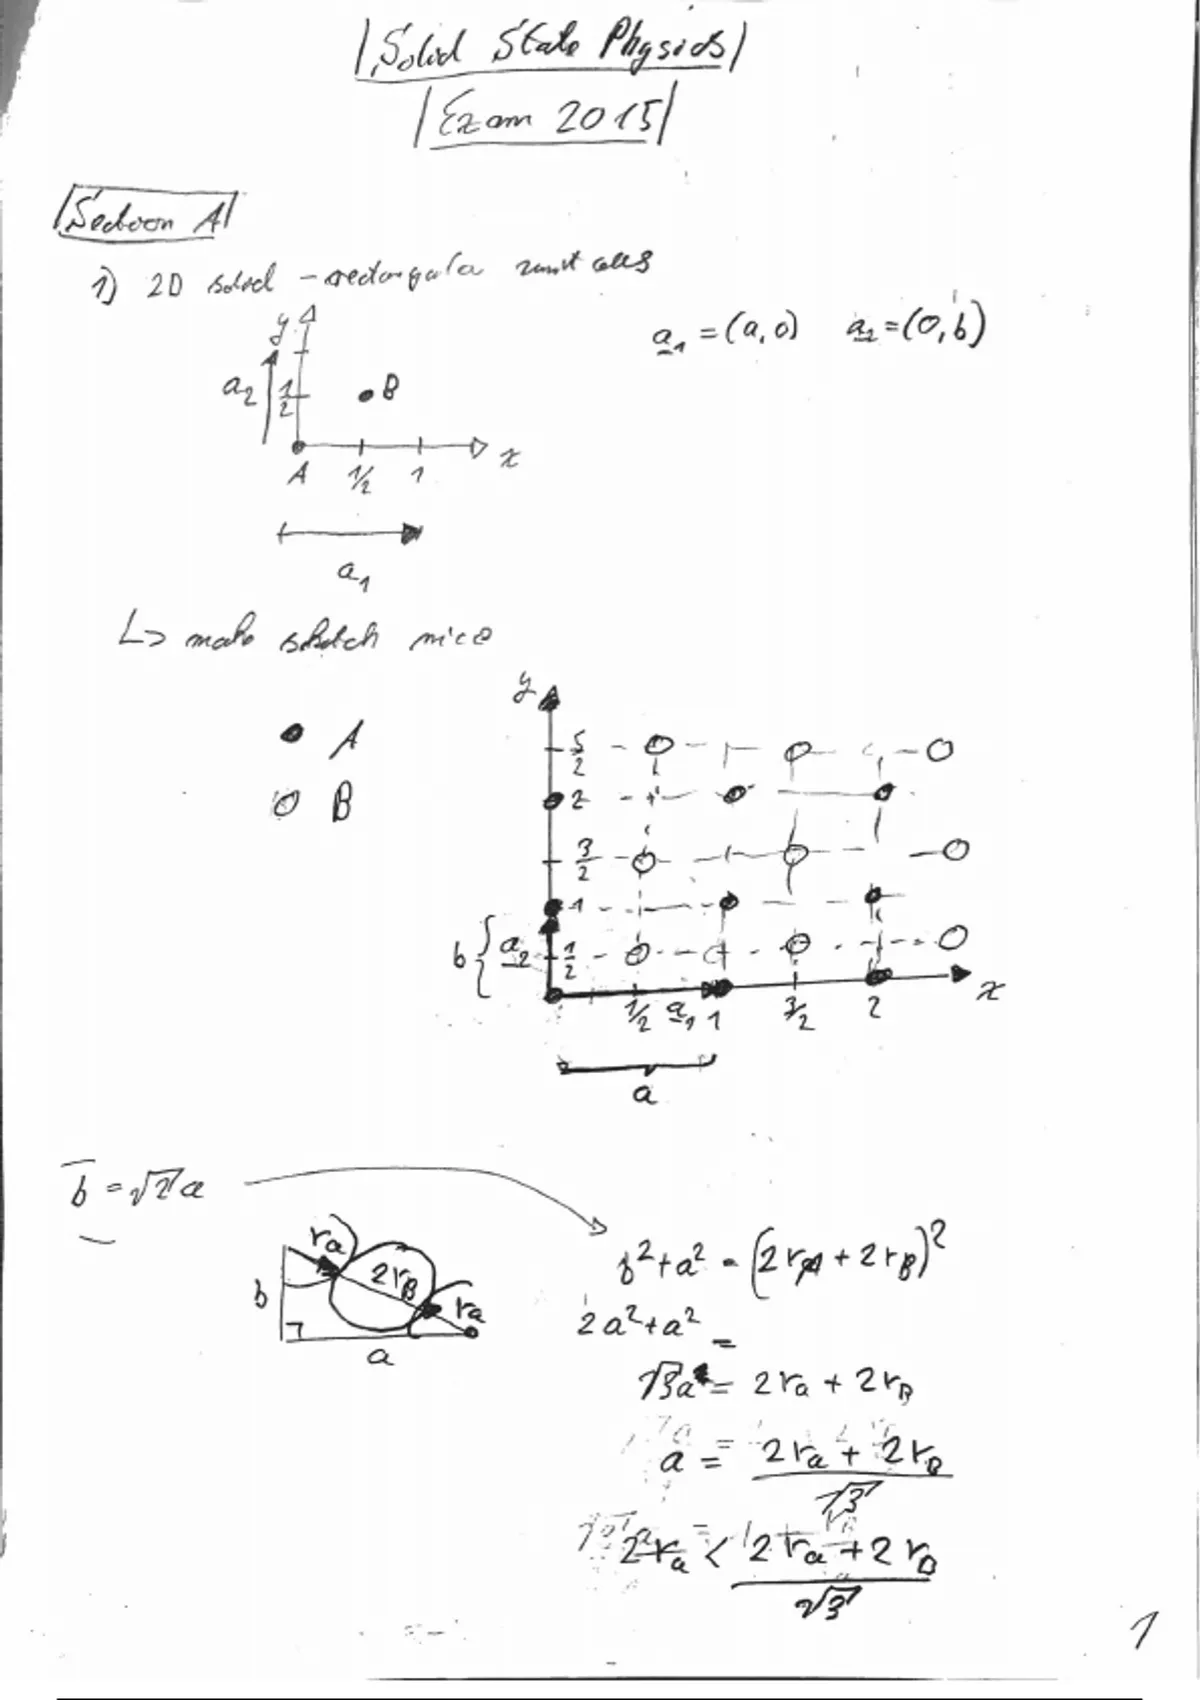 Solid State Physics
Exam 2015
Section A
1) 2D solid - rectangular unit cells
a₁ = (a, 0) a₂ = (0, b)
y
a₂ 1/2 B
x
A 1/2 1
a₁
↳ make sketch nice
A
B
y
5/2
2
3/2
1
b { a₂ 1/2
1/2 a₁ 1 3/2 2 x
a
b = √2 a
b² + a² = (2r_A + 2r_B)²
r_a 2r_B r_a
b
a
2a² + a² =
√3 a = 2r_a + 2r_B
a = (2r_a + 2r_B)/√3
2r_a < (2r_a + 2r_B)/√3
1